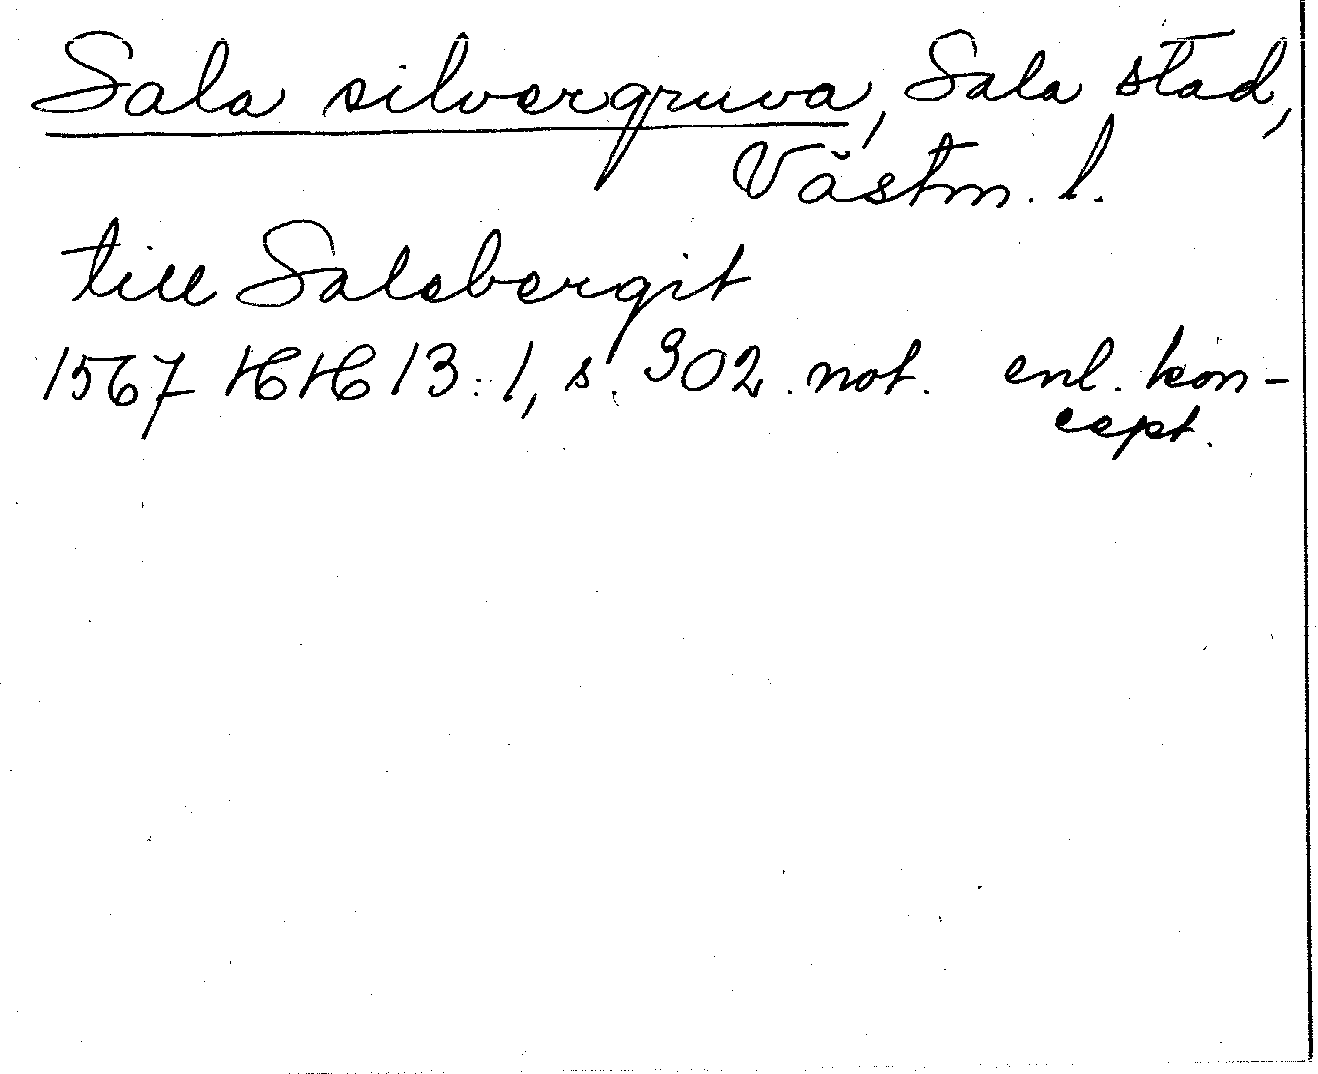 Sala silvergruva, Sala stad,
Västm. l.
till Salebergit
1567 HH 13:1, s. 302. not. enl. kon-
cept.